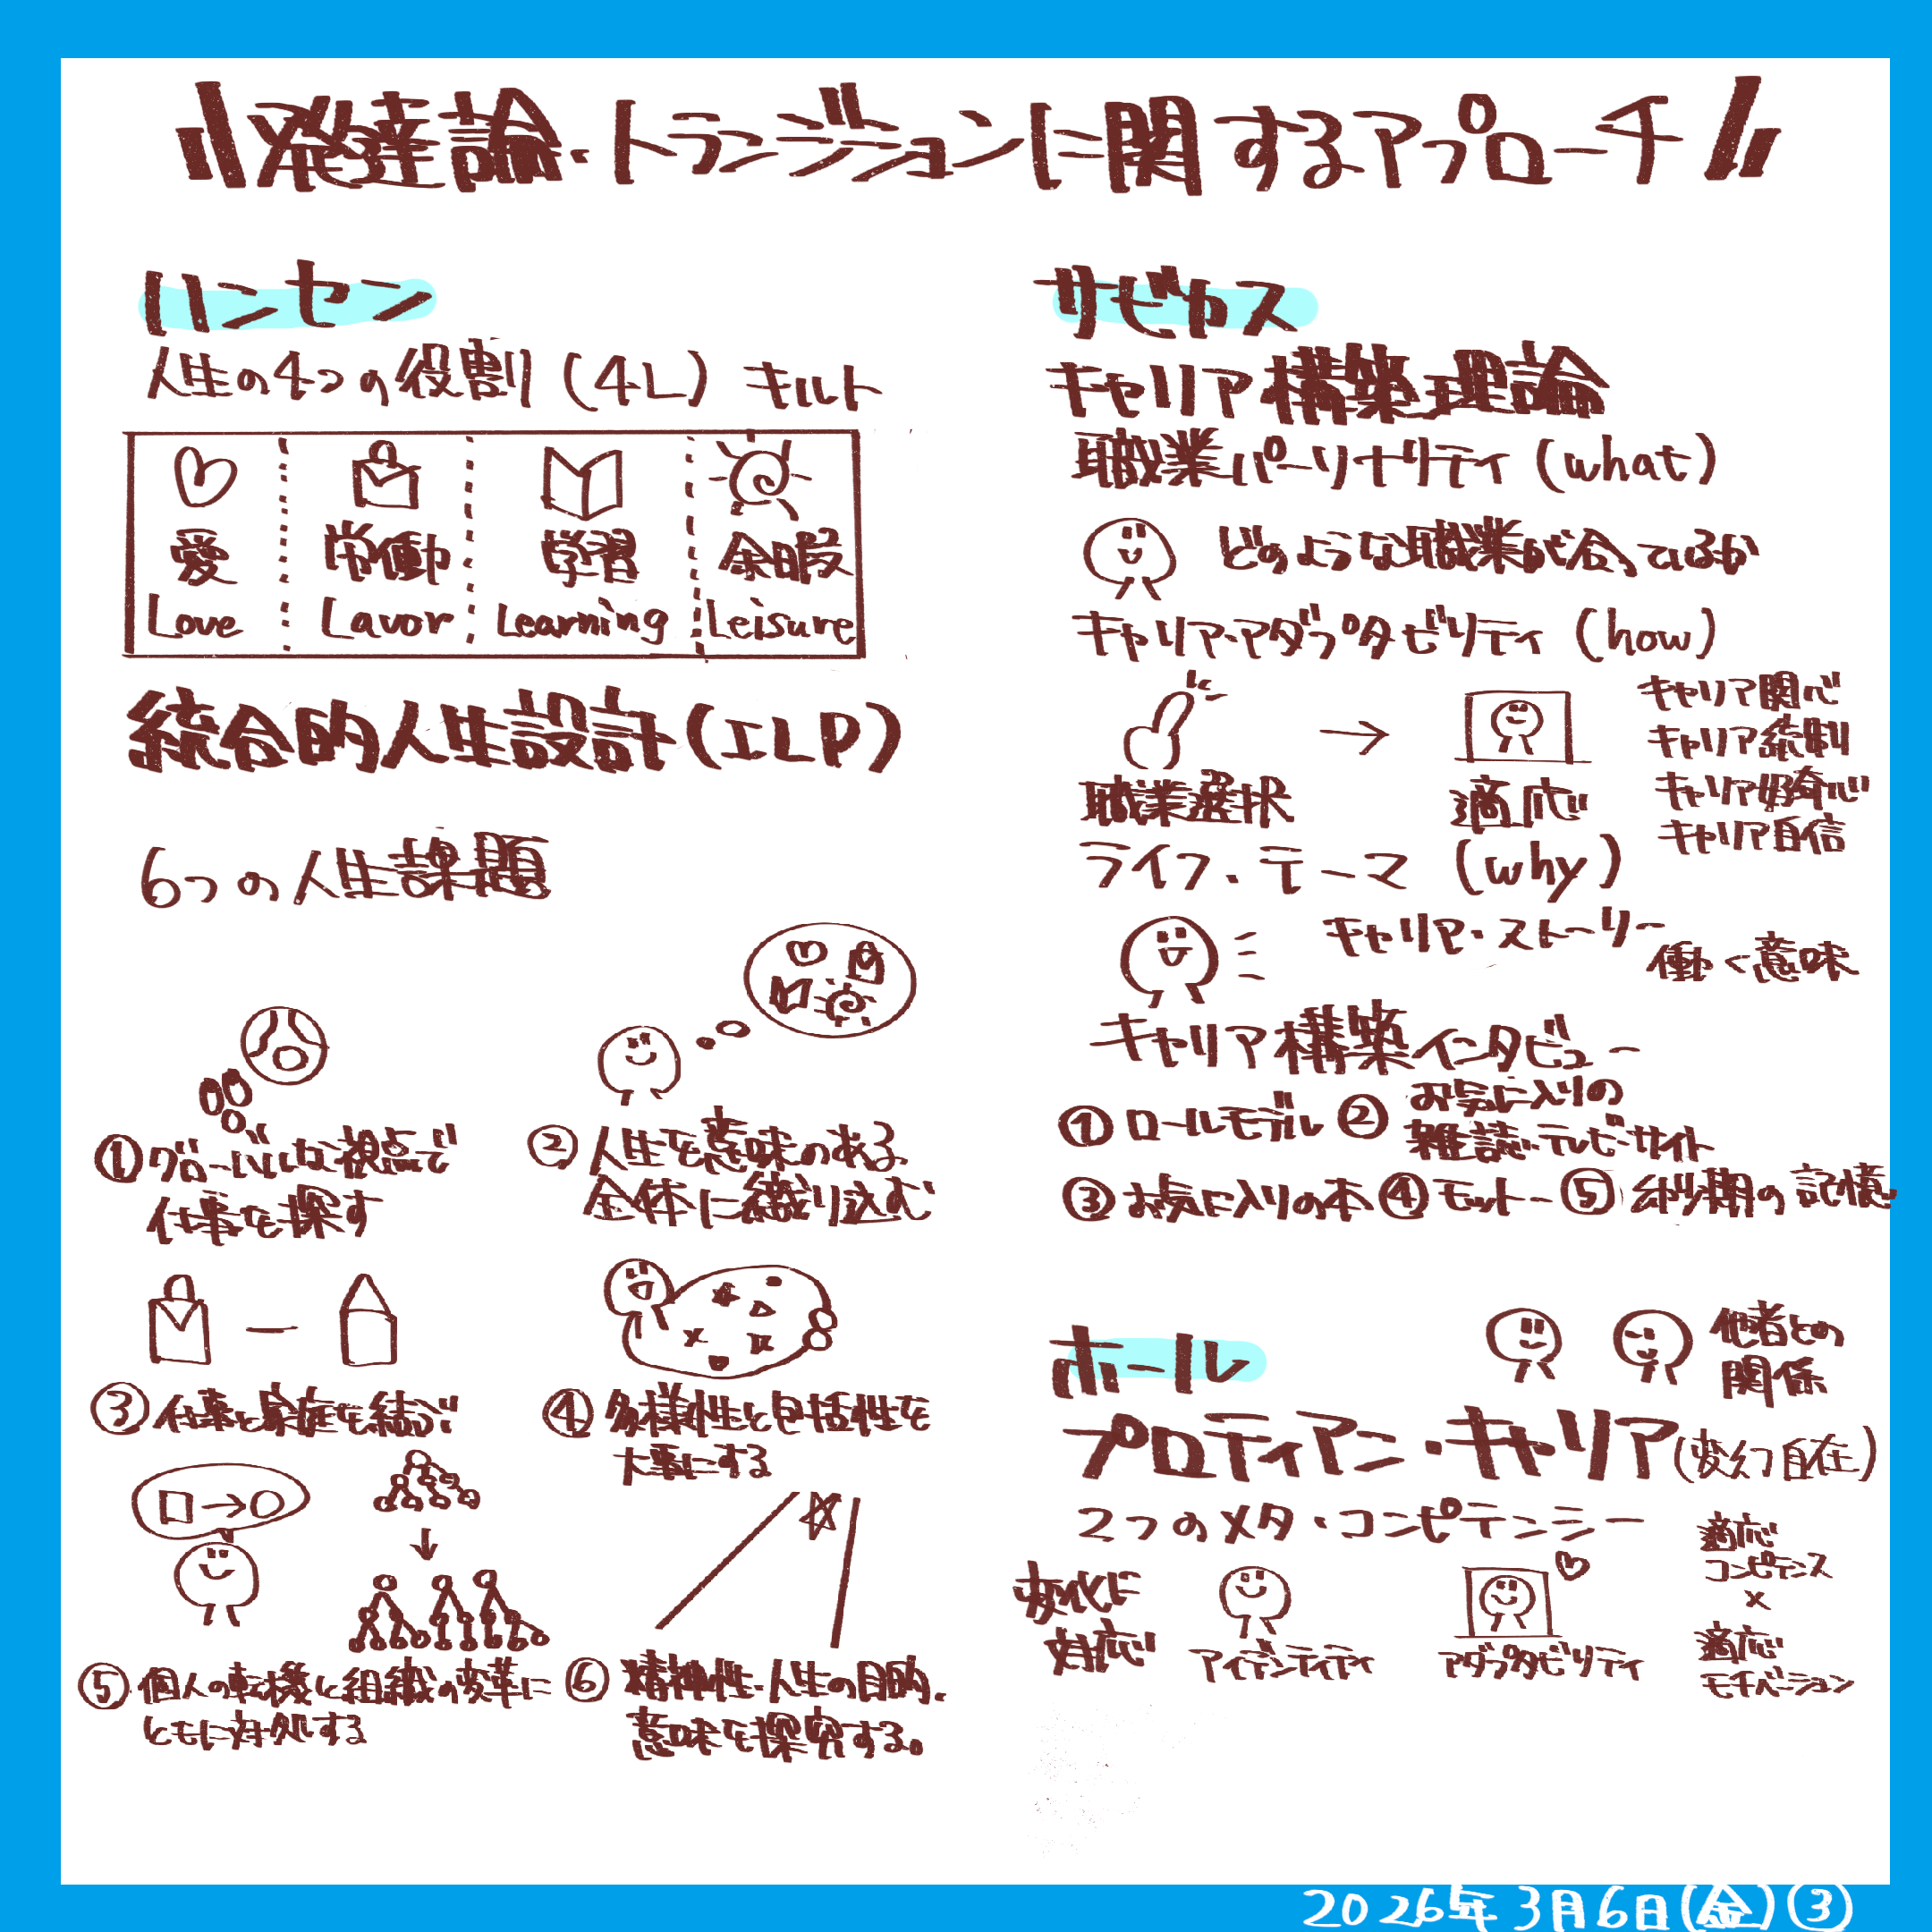 発達論・トランジションに関するアプローチ
ハンセン
人生の4つの役割(4L) キルト
愛
Love
常働
Lavor
学習
Learning
余暇
Leisure
統合的人生設計(ILP)
6つの人生課題
①グローバルな視点で
仕事を探す
②人生を意味のある
全体に織り込む
③仕事と家庭を結ぶ
④多様性と包括性を
大事にする
⑤個人の転機と組織の変革に
ともに対処する
⑥精神性・人生の目的、
意味を探究する。
サビカス
キャリア構築理論
職業パーソナリティ(what)
どのような職業が合っているか
キャリア・アダプタビリティ(how)
職業選択
→
適応
キャリア関心
キャリア統制
キャリア好奇心
キャリア自信
ライフ・テーマ(why)
キャリア・ストーリー
働く意味
キャリア構築インタビュー
①ロールモデル
②お気に入りの
雑誌・テレビ・サイト
③お気に入りの本④モットー⑤幼少期の記憶
ホール
他者との
関係
プロティアン・キャリア(変幻自在)
2つのメタ・コンピテンシー
変化に
対応
アイデンティティ
アダプタビリティ
適応
コンピテンス
×
適応
モチベーション
2026年3月6日(金)③